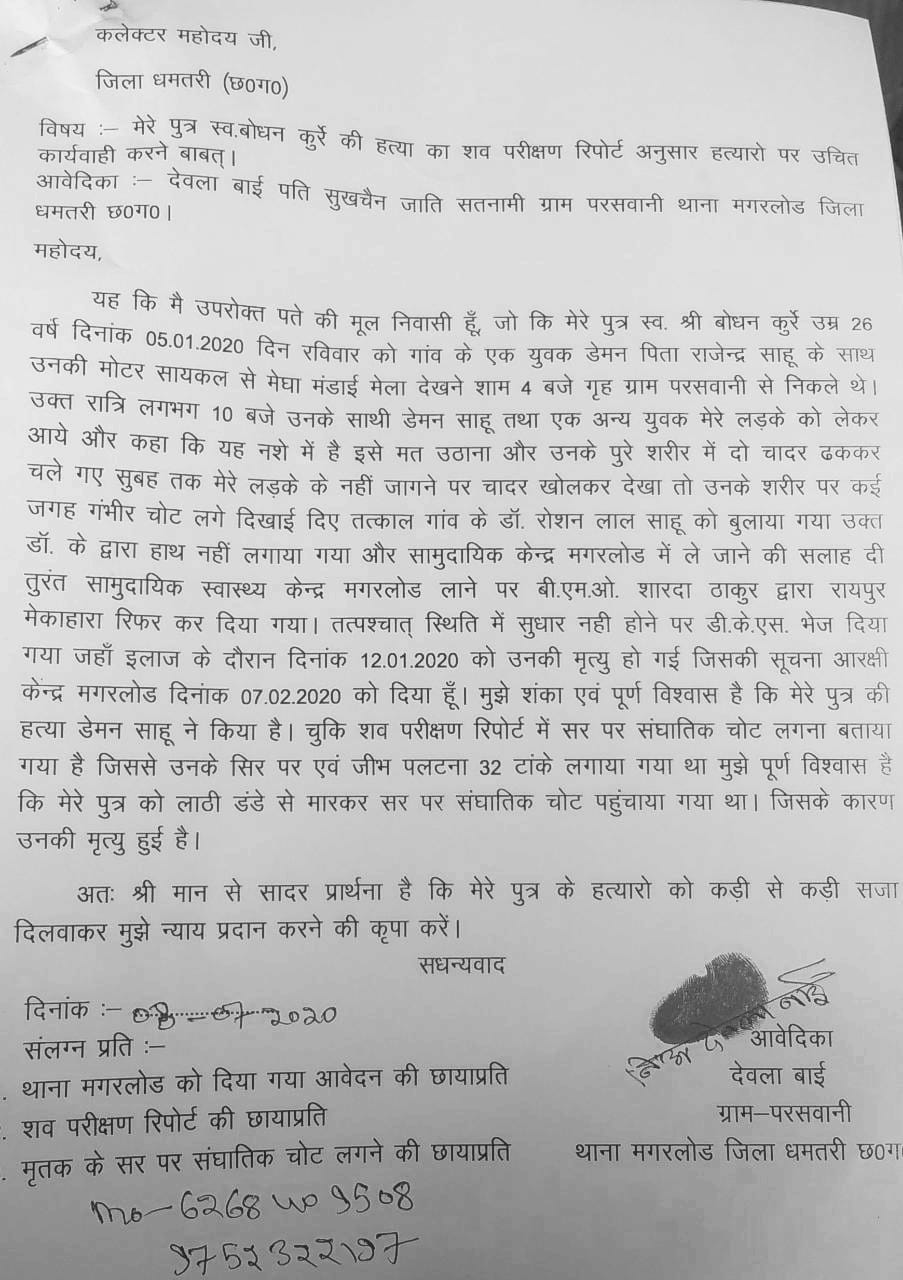 कलेक्टर महोदय जी,
जिला धमतरी (छ0ग0)
विषय :– मेरे पुत्र स्व.बोधन कुर्रे की हत्या का शव परीक्षण रिपोर्ट अनुसार हत्यारो पर उचित
कार्यवाही करने बाबत्।
आवेदिका :– देवला बाई पति सुखचैन जाति सतनामी ग्राम परसवानी थाना मगरलोड जिला
धमतरी छ0ग0।
महोदय,
यह कि मै उपरोक्त पते की मूल निवासी हूँ, जो कि मेरे पुत्र स्व. श्री बोधन कुर्रे उम्र 26
वर्ष दिनांक 05.01.2020 दिन रविवार को गांव के एक युवक डेमन पिता राजेन्द्र साहू के साथ
उनकी मोटर सायकल से मेघा मंडाई मेला देखने शाम 4 बजे गृह ग्राम परसवानी से निकले थे।
उक्त रात्रि लगभग 10 बजे उनके साथी डेमन साहू तथा एक अन्य युवक मेरे लड़के को लेकर
आये और कहा कि यह नशे में है इसे मत उठाना और उनके पुरे शरीर में दो चादर ढककर
चले गए सुबह तक मेरे लड़के के नहीं जागने पर चादर खोलकर देखा तो उनके शरीर पर कई
जगह गंभीर चोट लगे दिखाई दिए तत्काल गांव के डॉ. रोशन लाल साहू को बुलाया गया उक्त
डॉ. के द्वारा हाथ नहीं लगाया गया और सामुदायिक केन्द्र मगरलोड में ले जाने की सलाह दी
तुरंत सामुदायिक स्वास्थ्य केन्द्र मगरलोड लाने पर बी.एम.ओ. शारदा ठाकुर द्वारा रायपुर
मेकाहारा रिफर कर दिया गया। तत्पश्चात् स्थिति में सुधार नही होने पर डी.के.एस. भेज दिया
गया जहाँ इलाज के दौरान दिनांक 12.01.2020 को उनकी मृत्यु हो गई जिसकी सूचना आरक्षी
केन्द्र मगरलोड दिनांक 07.02.2020 को दिया हूँ। मुझे शंका एवं पूर्ण विश्वास है कि मेरे पुत्र की
हत्या डेमन साहू ने किया है। चुकि शव परीक्षण रिपोर्ट में सर पर संघातिक चोट लगना बताया
गया है जिससे उनके सिर पर एवं जीभ पलटना 32 टांके लगाया गया था मुझे पूर्ण विश्वास है
कि मेरे पुत्र को लाठी डंडे से मारकर सर पर संघातिक चोट पहुंचाया गया था। जिसके कारण
उनकी मृत्यु हुई है।
अतः श्री मान से सादर प्रार्थना है कि मेरे पुत्र के हत्यारो को कड़ी से कड़ी सजा
दिलवाकर मुझे न्याय प्रदान करने की कृपा करें।
सधन्यवाद
दिनांक :– 08-07-2020
संलग्न प्रति :–
आवेदिका
थाना मगरलोड को दिया गया आवेदन की छायाप्रति
देवला बाई
शव परीक्षण रिपोर्ट की छायाप्रति
ग्राम–परसवानी
मृतक के सर पर संघातिक चोट लगने की छायाप्रति
थाना मगरलोड जिला धमतरी छ0ग
mo-6268 40 9508
9752322197